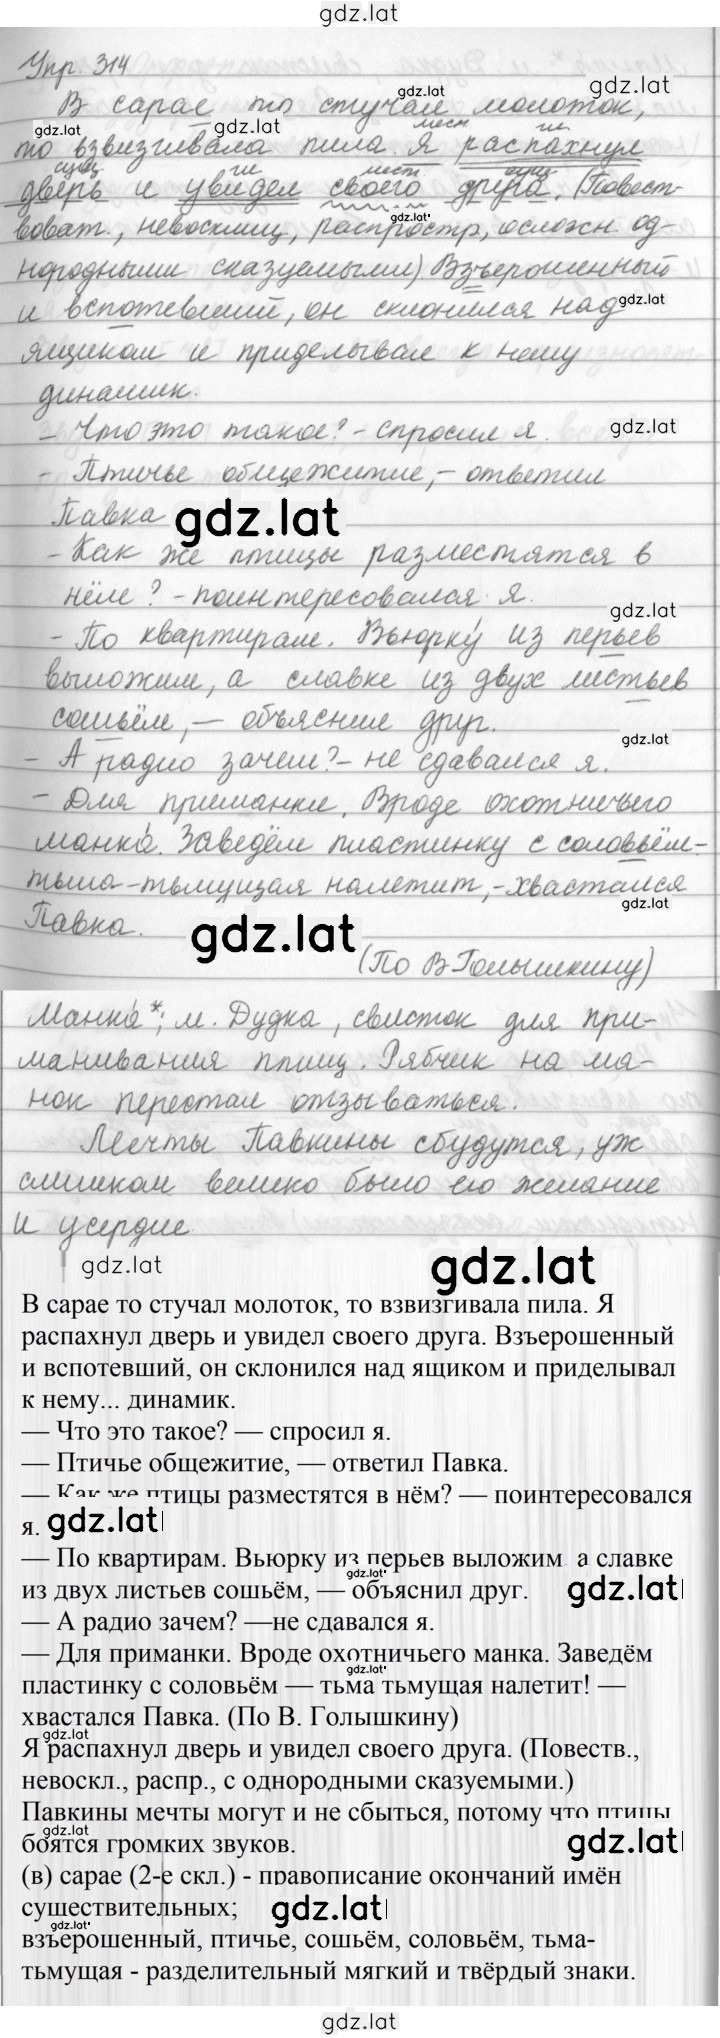 gdz.lat
Упр. 314
gdz.lat
gdz.lat
В сарае то стучал молоток,
gdz.lat
gdz.lat
мест гл.
то взвизгивала пила. Я распахнул
сущ. гл. мест. сущ.
дверь и увидел своего друга. (Повест-
gdz.lat
воват., невосклиц, распростр, осложн од-
нородными сказуемыми) Взъерошенный
и вспотевший, он склонился над
gdz.lat
ящиком и приделывал к нему
динамик.
- Что это такое? - спросил я.
gdz.lat
- Птичье общежитие, - ответил
Павка
gdz.lat
- Как же птицы разместятся в
нём? - поинтересовался я.
gdz.lat
- По квартирам. Вьюрку́ из перьев
выложим, а славке из двух листьев
сошьём, — объяснил друг.
gdz.lat
- А радио зачем? - не сдавался я.
- Для приманки. Вроде охотничьего
манка́. Заведём пластинку с соловьём-
тьма-тьмущая налетит, - хвастался
gdz.lat
Павка.
gdz.lat
(По В Голышкину)
Манка́*; м. Дудка, свисток для при-
манивания птиц. Рябчик на ма-
нок перестал отзываться.
Мечты Павкины сбудутся, уж
слишком велико было его желание
и усердие.
gdz.lat
gdz.lat
В сарае то стучал молоток, то взвизгивала пила. Я
распахнул дверь и увидел своего друга. Взъерошенный
и вспотевший, он склонился над ящиком и приделывал
к нему... динамик.
— Что это такое? — спросил я.
— Птичье общежитие, — ответил Павка.
— Как же птицы разместятся в нём? — поинтересовался
я.
gdz.lat
— По квартирам. Вьюрку из перьев выложим а славке
gdz.lat
из двух листьев сошьём, — объяснил друг.
gdz.lat
— А радио зачем? —не сдавался я.
— Для приманки. Вроде охотничьего манка. Заведём
gdz.lat
пластинку с соловьём — тьма тьмущая налетит! —
хвастался Павка. (По В. Голышкину)
gdz.lat
Я распахнул дверь и увидел своего друга. (Повеств.,
невоскл., распр., с однородными сказуемыми.)
Павкины мечты могут и не сбыться, потому что птицы
gdz.lat
боятся громких звуков.
gdz.lat
(в) сарае (2-е скл.) - правописание окончаний имён
существительных;
gdz.lat
gdz.lat
взъерошенный, птичье, сошьём, соловьём, тьма-
тьмущая - разделительный мягкий и твёрдый знаки.
gdz.lat